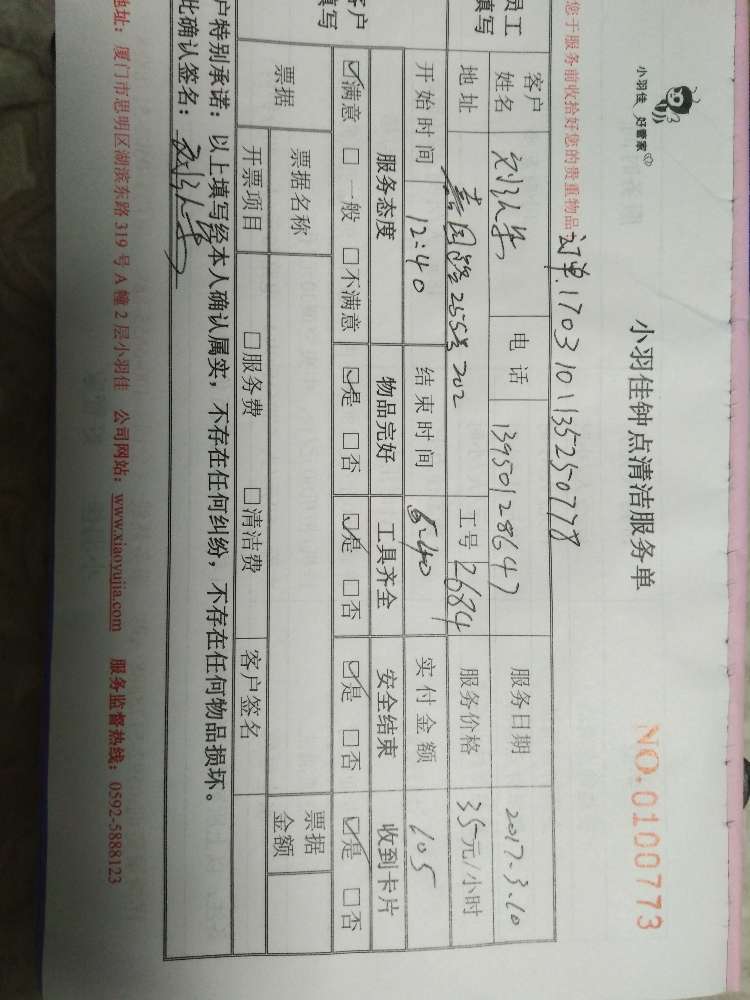 小羽佳 好管家
小羽佳钟点清洁服务单
NO.0100773
您于服务前收拾好您的贵重物品 订单.1703101135250778
员工填写 客户姓名 电话 13950128647 服务日期 2017.3.10
地址 255号202 工号 2684 服务价格 35元/小时
开始时间 12:40 结束时间 实付金额 105
客户填写 服务态度 物品完好 工具齐全 安全结束 收到卡片
☑满意 □一般 □不满意 ☑是 □否 ☑是 □否 ☑是 □否 ☑是 □否
票据 票据名称 票据金额
开票项目 □服务费 □清洁费 客户签名
户特别承诺：以上填写经本人确认属实，不存在任何纠纷，不存在任何物品损坏。
此确认签名：
地址：厦门市思明区湖滨东路319号A幢2层小羽佳 公司网站：www.xiaoyujia.com 服务监督热线：0592-5888123